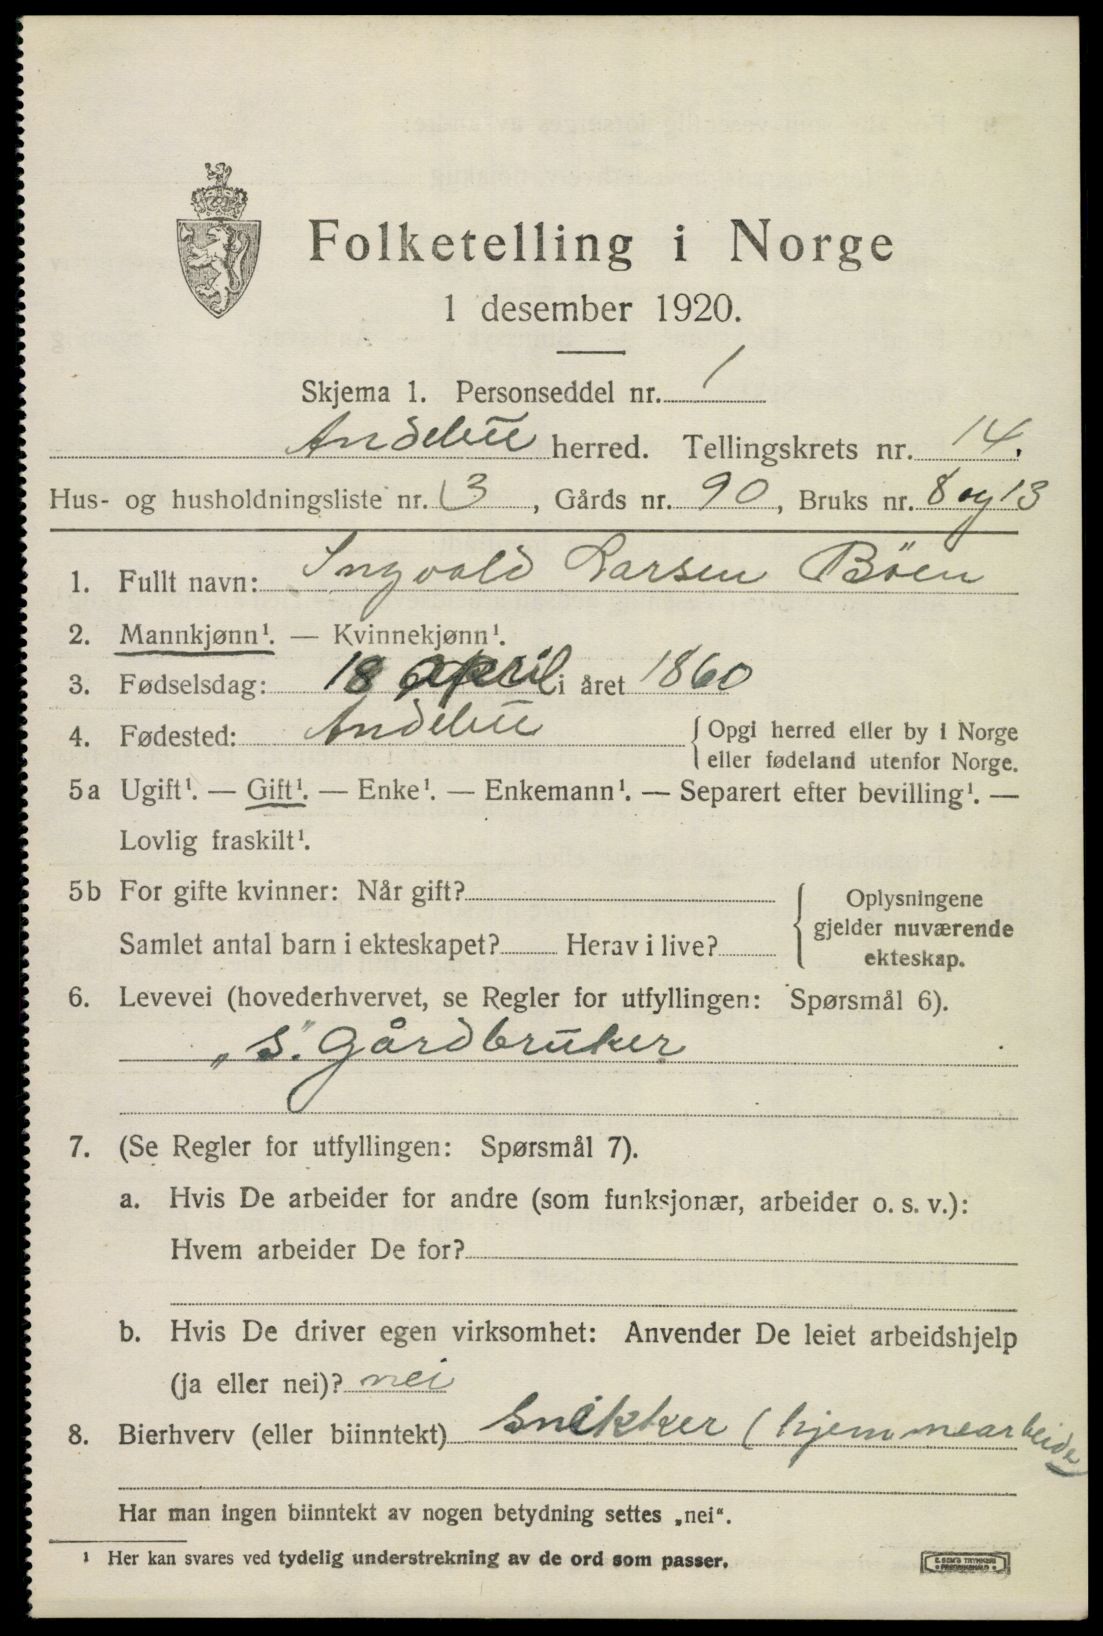 Folketelling i Norge
1 desember 1920.
Skjema 1. Personseddel nr. 1
Andebu herred. Tellingskrets nr. 14.
Hus- og husholdningsliste nr. 3, Gårds nr. 90, Bruks nr. 8 og 13
1. Fullt navn: Ingvald Larsen Böen
2. Mannkjønn¹. — Kvinnekjønn¹.
3. Fødselsdag: 18 april i året 1860
4. Fødested: Andebu { Opgi herred eller by i Norge
eller fødeland utenfor Norge.
5a Ugift¹. — Gift¹. — Enke¹. — Enkemann¹. — Separert efter bevilling¹. —
Lovlig fraskilt¹.
5b For gifte kvinner: Når gift?
Samlet antal barn i ekteskapet? Herav i live?
{ Oplysningene
gjelder nuværende
ekteskap.
6. Levevei (hovederhvervet, se Regler for utfyllingen: Spørsmål 6).
„S.” Gårdbruker
7. (Se Regler for utfyllingen: Spørsmål 7).
a. Hvis De arbeider for andre (som funksjonær, arbeider o. s. v.):
Hvem arbeider De for?
b. Hvis De driver egen virksomhet: Anvender De leiet arbeidshjelp
(ja eller nei)? nei
8. Bierhverv (eller biinntekt) Snekker (hjemmearbeide
Har man ingen biinntekt av nogen betydning settes „nei“.
¹ Her kan svares ved tydelig understrekning av de ord som passer.